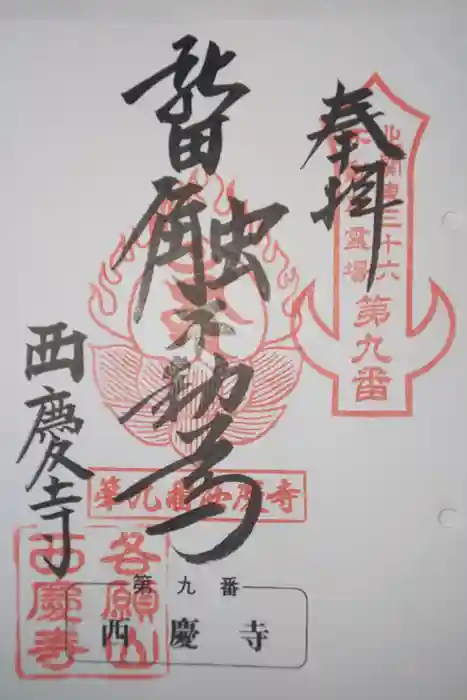 奉拝
北関東三十六
不動尊霊場
第九番
不動
西慶寺
第九番西慶寺
各願山
西慶寺
第九番
西慶寺